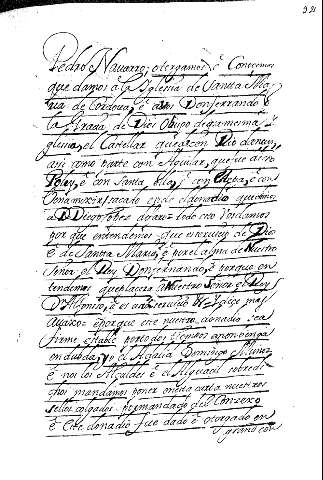 321
Pedro Navarro, otorgamos è Conocemos
que damos à la Iglesia de Santa Ma-
ria de Cordova, è à vos Don Ferrando
la Grazia de Dios Obispo de esa misma I-
glesia, el Castellar que es con Rio
assi como parte con Aguilar, que fue de
Poley, è con Santa ella, è con è con
sacado ende el donadio que
à D. Diego todo esto
por que entendemos que es servicio de Dio
è de Santa Maria, è por el alma de nuestro
Señor el Rey Don Fernando, è porque en-
tendemos que placera à Nuestro Señor el Rey
D. Alfonso, è es su servicio
è porque este nuestro donadio sea
firme, è estable por todos tiempos è non venga
en dubda, yo el Alguazil Domingo Muñoz
è nos los Alcaldes è el Alguazil sobredi-
chos mandamos poner en esta carta nuestros
sellos colgados por mandado del Conzexo
è este donadio fue dado è otorgado en